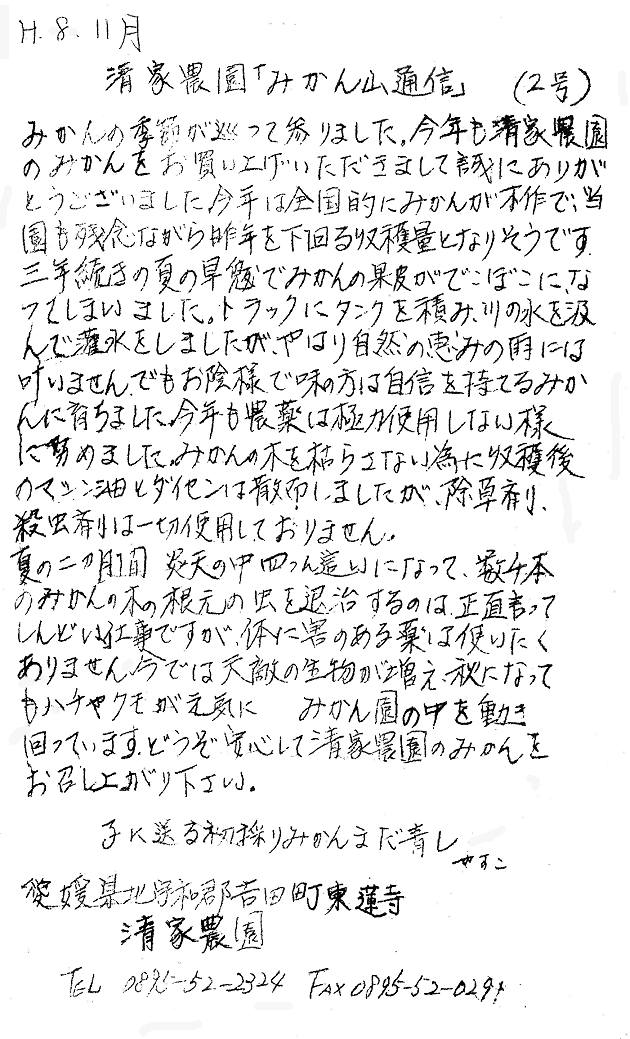 H.8.11月
清家農園「みかん山通信」 (2号)
みかんの季節が巡って参りました。今年も清家農園
のみかんをお買い上げいただきまして誠にありが
とうございました。今年は全国的にみかんが不作で、当
園も残念ながら昨年を下回る収穫量となりそうです。
三年続きの夏の旱魃でみかんの果皮がでこぼこにな
ってしまいました。トラックにタンクを積み、川の水を汲
んで灌水をしましたが、やはり自然の恵みの雨には
叶いません。でもお陰様で味の方は自信を持てるみか
んに育ちました。今年も農薬は極力使用しない様
に努めました。みかんの木を枯らさない為に収穫後
のマシン油とダイセンは散布しましたが、除草剤、
殺虫剤は一切使用しておりません。
夏の二カ月間 炎天の中四つん這いになって、数千本
のみかんの木の根元の虫を退治するのは、正直言って
しんどい仕事ですが、体に害のある薬は使いたく
ありません。今では天敵の生物が増え、秋になって
もハチやクモが元気に みかん園の中を動き
回っています。どうぞ安心して清家農園のみかんを
お召し上がり下さい。
子に送る初採りみかんまだ青し
やすこ
愛媛県北宇和郡吉田町東蓮寺
清家農園
TEL 0895-52-2324 FAX 0895-52-0291